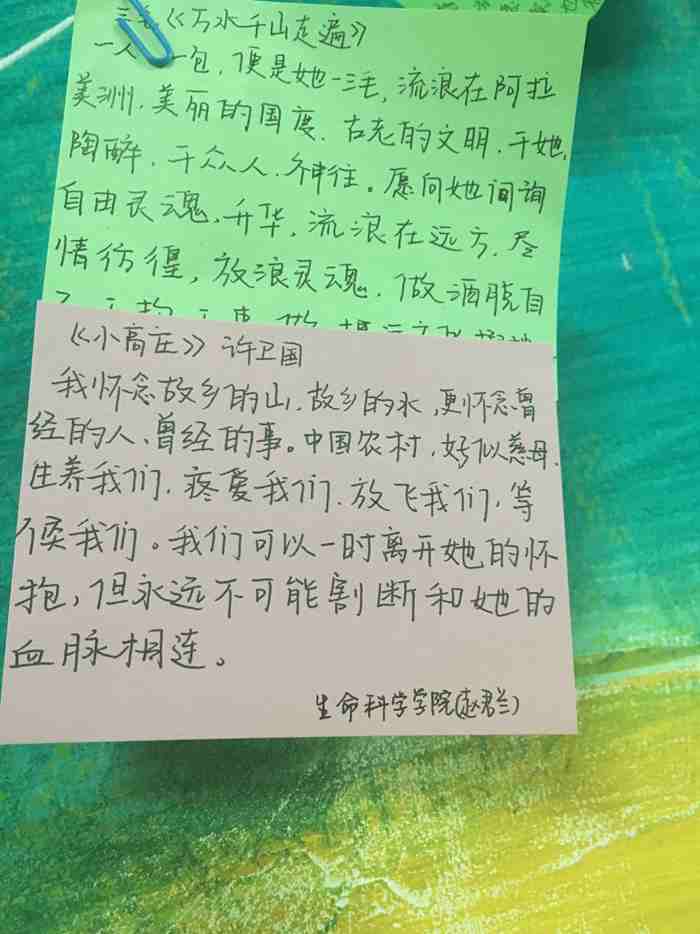 三毛《万水千山走遍》
一人 一包，便是她-三毛，流浪在阿拉
美洲，美丽的国度、古老的文明，于她，
陶醉，于众人，神往。愿向她问询
自由灵魂，升华，流浪在远方，尽
情彷徨，放浪灵魂，做洒脱自
《小高庄》 许卫国
我怀念故乡的山，故乡的水，更怀念曾
经的人、曾经的事。中国农村，好似慈母，
生养我们，疼爱我们，放飞我们，等
候我们。我们可以一时离开她的怀
抱，但永远不可能割断和她的
血脉相连。
生命科学学院(赵君兰)